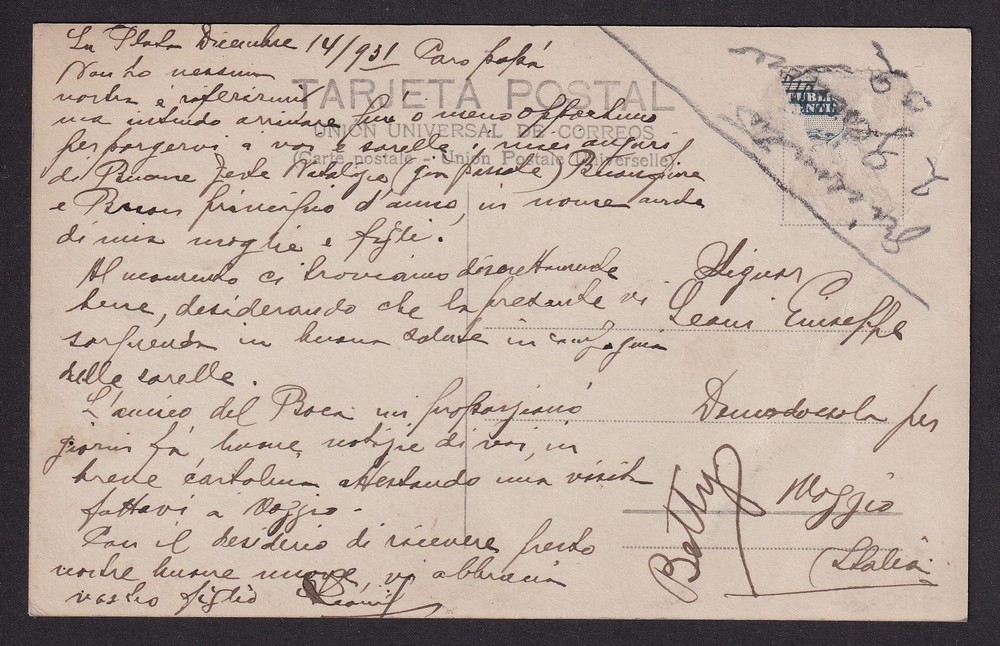 La Plata Dicembre 14/931 Caro papà
Non ho nessuna
vostra a riferirmi
TARJETA POSTAL
ma intendo arrivare più o meno opportuno
UNION UNIVERSAL DE CORREOS
per porgervi a voi e sorelle i miei auguri
(Carte postale - Union Postale Universelle)
di Buone Feste Natalizie (già passate) Buon fine
e Buon principio d'anno, in nome anche
di mia moglie e figli.
Al momento ci troviamo discretamente
bene, desiderando che la presente vi
sorprenda in buona salute in compagnia
delle sorelle.
L'amico del Boca mi proporzionò
giorni fà, buone notizie di voi, in
breve cartolina attestando una visita
fattavi a Vaggio.
Con il desiderio di ricevere presto
vostre buone nuove, vi abbraccia
vostro figlio
Signor
Leoni Giuseppe
Domodossola per
Vaggio
Italia
Batty
PUBLI
ENTI